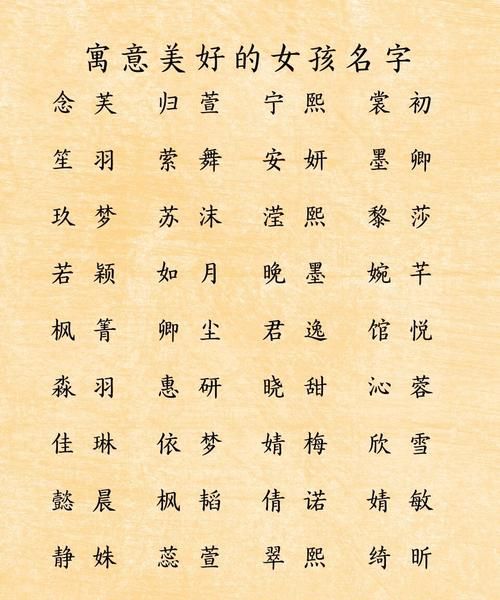 寓意美好的女孩名字
念芙 归萱 宁熙 裳初
笙羽 萦舞 安妍 墨卿
玖梦 苏沫 滢熙 黎莎
若颖 如月 晚墨 婉芊
枫箐 卿尘 君逸 馆悦
淼羽 惠研 晓甜 沁蓉
佳琳 依梦 婧梅 欣雪
懿晨 枫韬 倩诺 婧敏
静姝 蕊萱 翠熙 绮昕